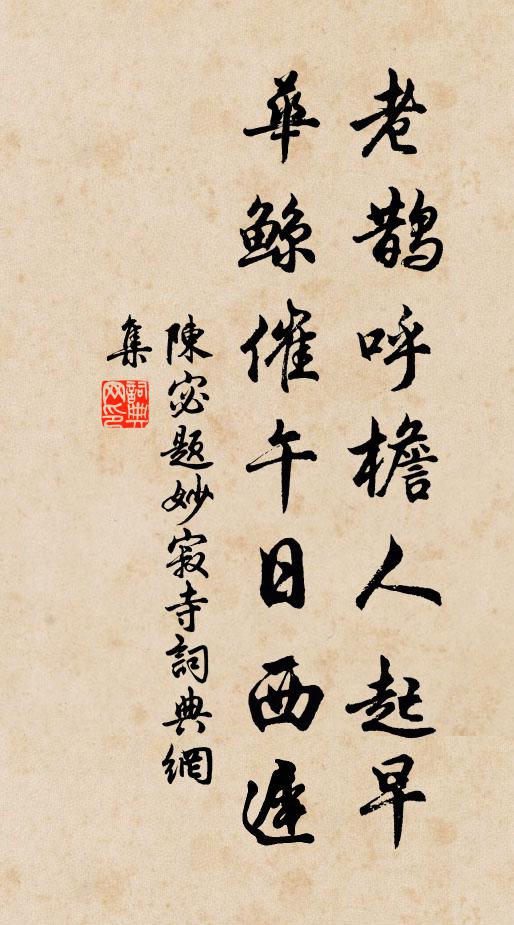 老鵲呼檐人起早
華鯨催午日西遲
陳宓題妙寂寺詞典網
集
詞典
网印